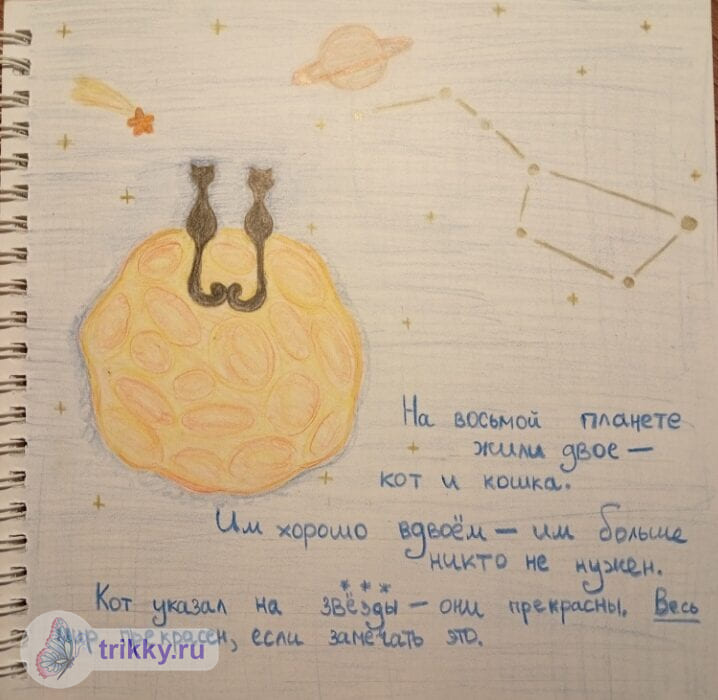 На восьмой планете
жили двое —
кот и кошка.
Им хорошо вдвоём — им больше
никто не нужен.
Кот указал на звёзды — они прекрасны. Весь
мир прекрасен, если замечать это.
trikky.ru